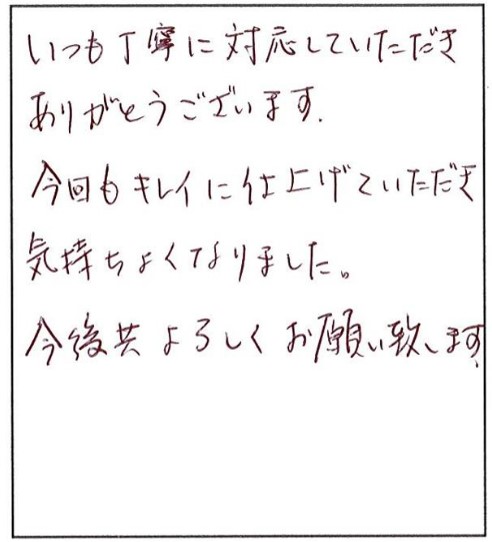 いつも丁寧に対応していただき
ありがとうございます.
今回もキレイに仕上げていただき
気持ちよくなりました。
今後共よろしくお願い致します